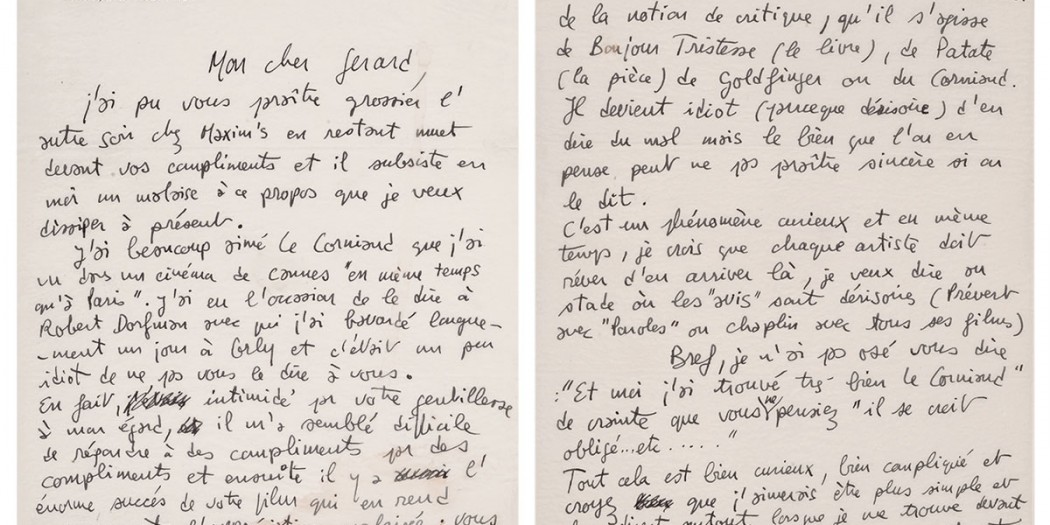 Mon cher Gerard,
j'ai pu vous praître grossier l'
autre soir chez Maxim's en restant muet
devant vos campliments et il subsiste en
moi un malaise à ce propos que je veux
dissiper à présent.
J'ai beaucoup aimé le Corniaud que j'ai
vu dans un cinéma de cannes "en même temps
qu'à Paris". J'ai eu l'occasion de le dire à
Robert Dorfman avec qui j'ai bavardé langue-
-ment un jour à Orly et c'était un peu
idiot de ne pas vous le dire à vous.
En fait, intimidé par votre gentillesse
à mon égard, il m'a semblé difficile
de répondre à des campliments par des
compliments et ensuite il y a l'
énorme succès de votre film qui en rend
vous
de la notion de critique, qu'il s'agisse
de Bonjour Tristesse (le livre), de Patate
(la pièce) de Goldfinger ou du Corniaud.
Il devient idiot (parceque dérisoire) d'en
dire du mal mais le bien que l'on en
pense peut ne pas praître sincère si on
le dit.
C'est un phénomène curieux et en même
temps, je crois que chaque artiste doit
rêver d'en arriver là, je veux dire au
stade où les "avis" sont dérisoires (Prévert
avec "Paroles" ou chaplin avec tous ses films)
Bref, je n'ai pas osé vous dire
:"Et moi j'ai trouvé très bien le Corniaud"
de crainte que vous ne pensiez "il se croit
obligé...etc....."
Tout cela est bien curieux, bien campliqué et
croyez que j'aimerais être plus simple et
surtout lorsque je me trouve devant